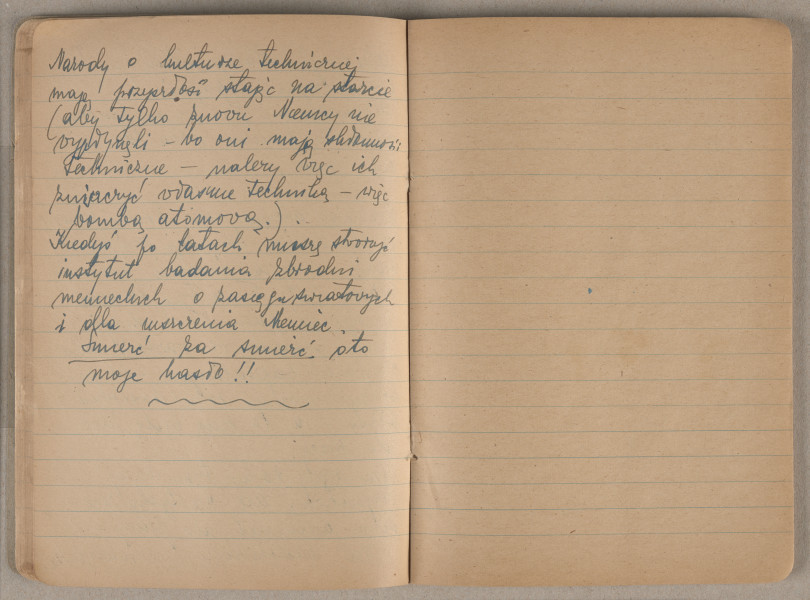 Narody o kulturze technicznej
mają przyszłość stając na starcie
(aby tylko znowu Niemcy nie
wypłynęli – bo oni mają zdolności
techniczne – należy więc ich
zniszczyć własne techniką – więc
bombą atomową.) ..
Kiedyś po latach muszę stworzyć
instytut badania zbrodni
niemieckich o zasięgu światowych
i dla niszczenia Niemiec.
Śmierć za śmierć oto
moje hasło!!